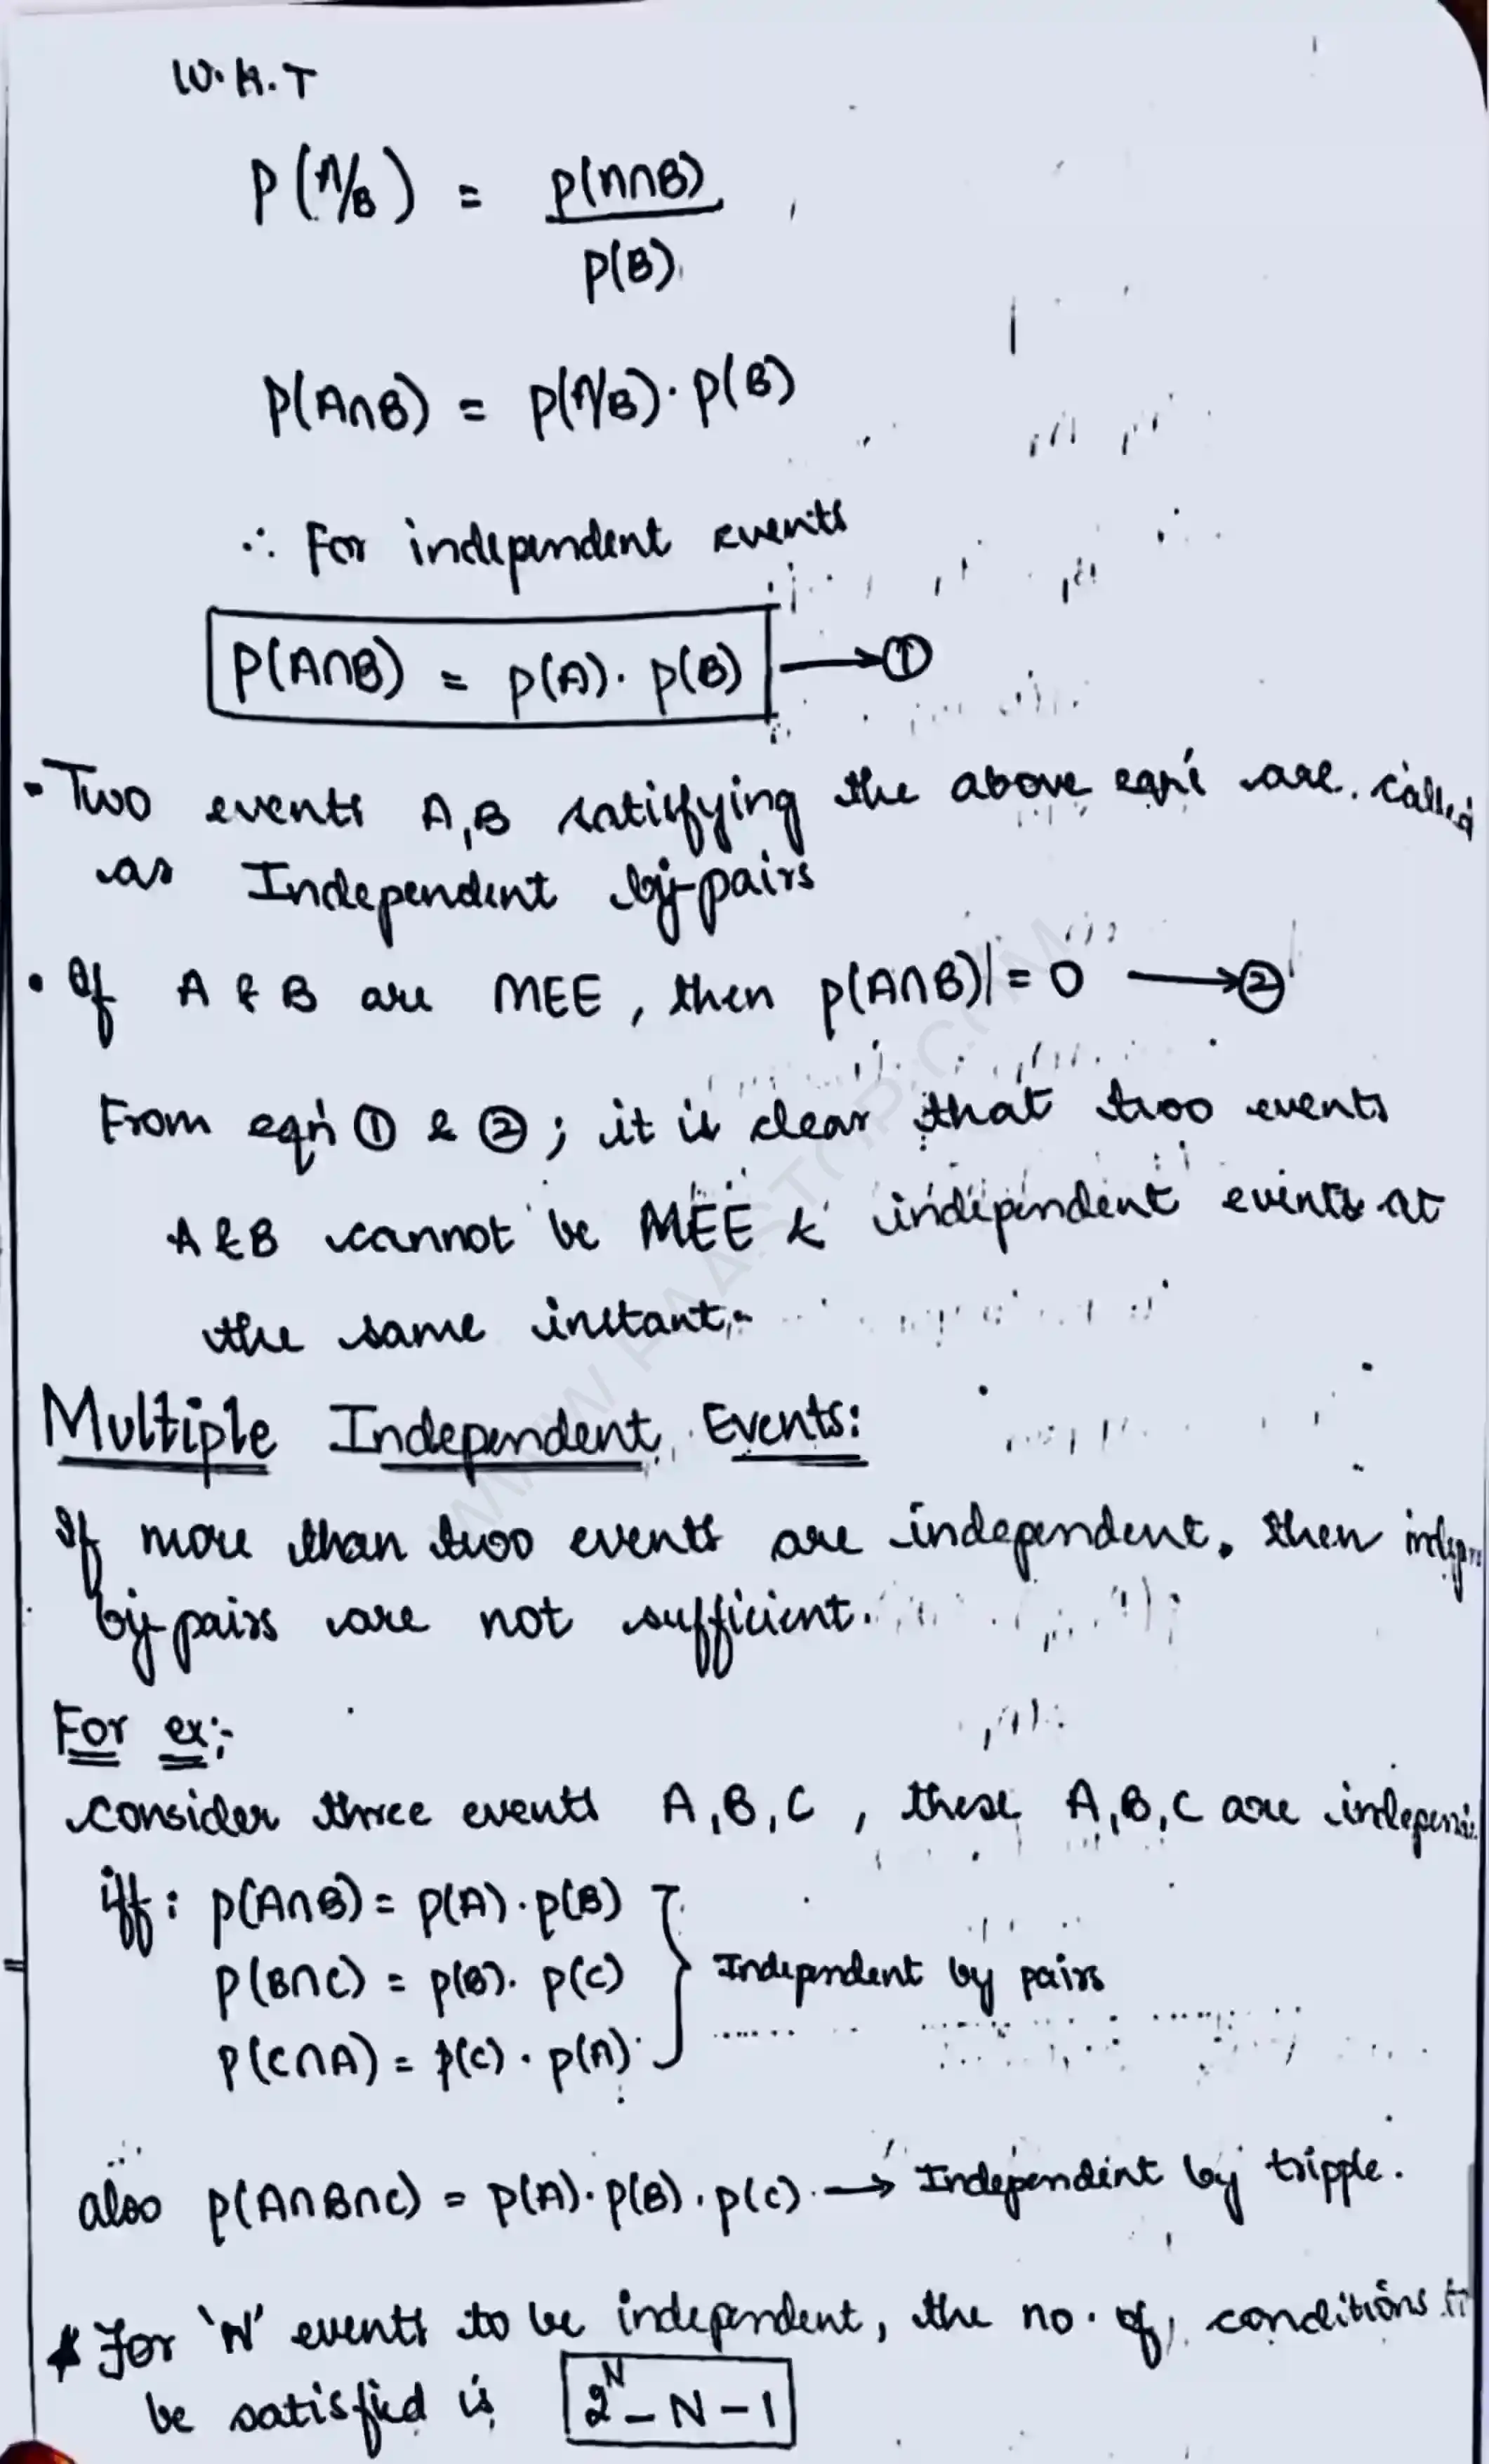 W.K.T
P(A/B) = P(A∩B)
P(B)
P(A∩B) = P(A/B) . P(B)
∴ For independent events
P(A∩B) = P(A) . P(B) → ①
• Two events A,B satisfying the above eqn's are called
as Independent by-pairs
• If A & B are MEE, then P(A∩B) = 0 → ②
From eqn ① & ② ; it is clear that two events
A & B cannot be MEE & independent events at
the same instant.
Multiple Independent Events:
If more than two events are independent. then
by-pairs are not sufficient.
For ex:-
consider three events A,B,C , these A,B,C are
iff : P(A∩B) = P(A) . P(B)
P(B∩C) = P(B) . P(C) Independent by pairs
P(C∩A) = P(C) . P(A)
also P(A∩B∩C) = P(A) . P(B) . P(C) . → Independent by tripple.
* For 'N' events to be independent, the no. of conditions
be satisfied is 2^N - N - 1